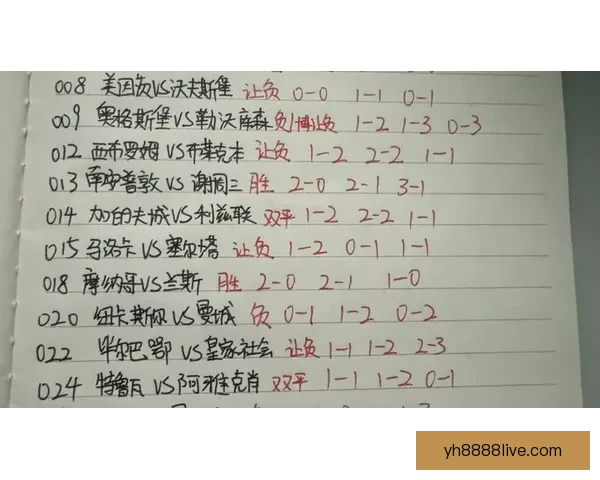 008 美因茨VS沃夫斯堡 让负 0-0 1-1 0-1
009 奥格斯堡VS勒沃库森负/博让负 1-2 1-3 0-3
012 西布罗姆VS布莱克本 让负 1-2 2-2 1-1
013 南安普敦VS谢周三 胜 2-0 2-1 3-1
014 加的夫城VS利兹联 双平 1-2 2-2 1-1
015 马洛卡VS塞尔塔 让负 1-2 0-1 1-1
018 摩纳哥VS兰斯 胜 2-0 2-1 1-0
020 纽卡斯尔VS曼城 负 0-1 1-2 0-2
022 毕尔巴鄂VS皇家社会 让负 1-1 1-2 2-3
024 特鲁瓦VS阿雅克肖 双平 1-1 1-2 0-1
yh8888live.com